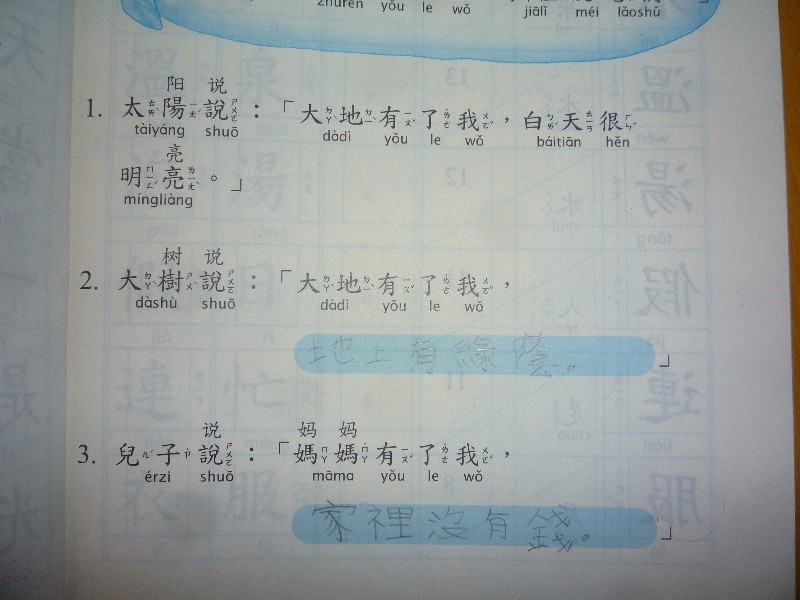 zhǔrén yǒu le wǒ
jiālǐ méi lǎoshǔ
阳 说
1. 太陽說：「大地有了我，白天很
tàiyáng shuō dàdì yǒu le wǒ báitiān hěn
亮
明亮。」
míngliàng
树 说
2. 大樹說：「大地有了我，
dàshù shuō dàdì yǒu le wǒ
地上有綠陰。」
说 妈 妈
3. 兒子說：「媽媽有了我，
érzi shuō māma yǒu le wǒ
家裡沒有錢。」